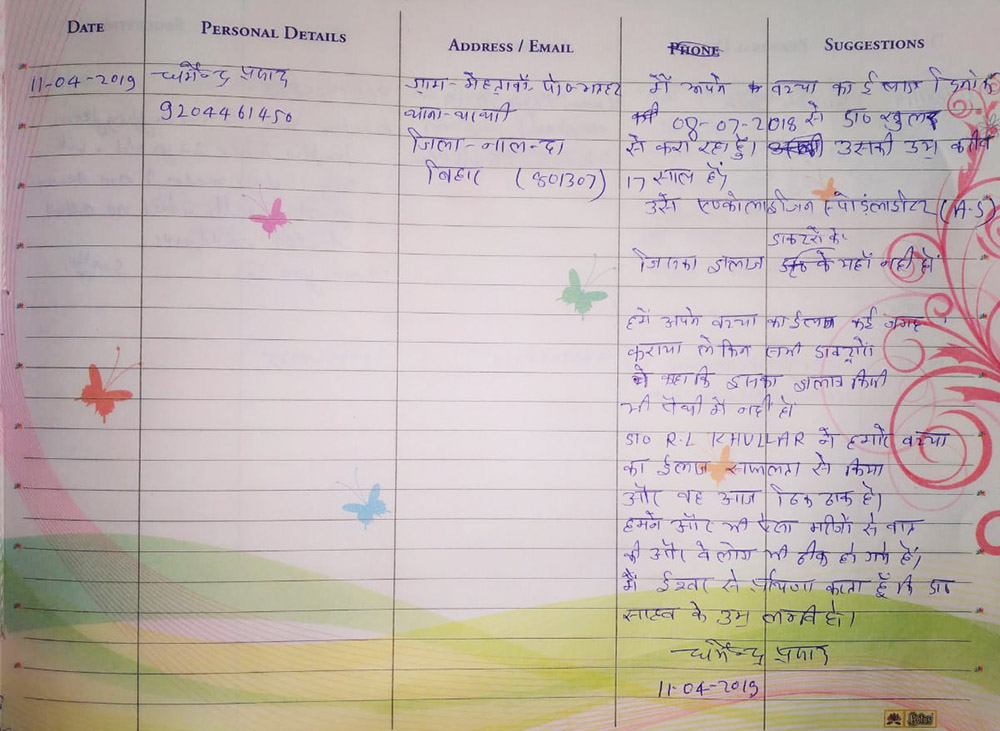 DATE
PERSONAL DETAILS
ADDRESS / EMAIL
PHONE
SUGGESTIONS
11-04-2019
धर्मेन्द्र प्रसाद
9204461450
ग्राम - पो०-
थाना-
जिला - नालन्दा
बिहार (801307)
मैं अपने बच्चा का ईलाज
08-07-2018 से डा० खुलर
से करा रहा हुँ। उसकी उम्र करीब
17 साल है।
उसे (A-S)
डाक्टरों के
जिसका इलाज के यहाँ नही है।
हमें अपने बच्चा का ईलाज कई जगह
कराया लेकिन सभी डाक्ट्ररों
ने कहा कि इसका इलाज किसी
भी पैथी में नही है।
डा० R.L KHULLAR ने हमारे बच्चा
का ईलाज सफलता से किया
और वह आज ठिक ठाक है।
हमने और भी ऐसा मरीजों से बात
की और वे लोग भी ठीक हो गये हैं।
मैं ईश्वर से करता हूँ कि डा०
साहब के उम्र लम्बी हो।
धर्मेन्द्र प्रसाद
11-04-2019
Lotus